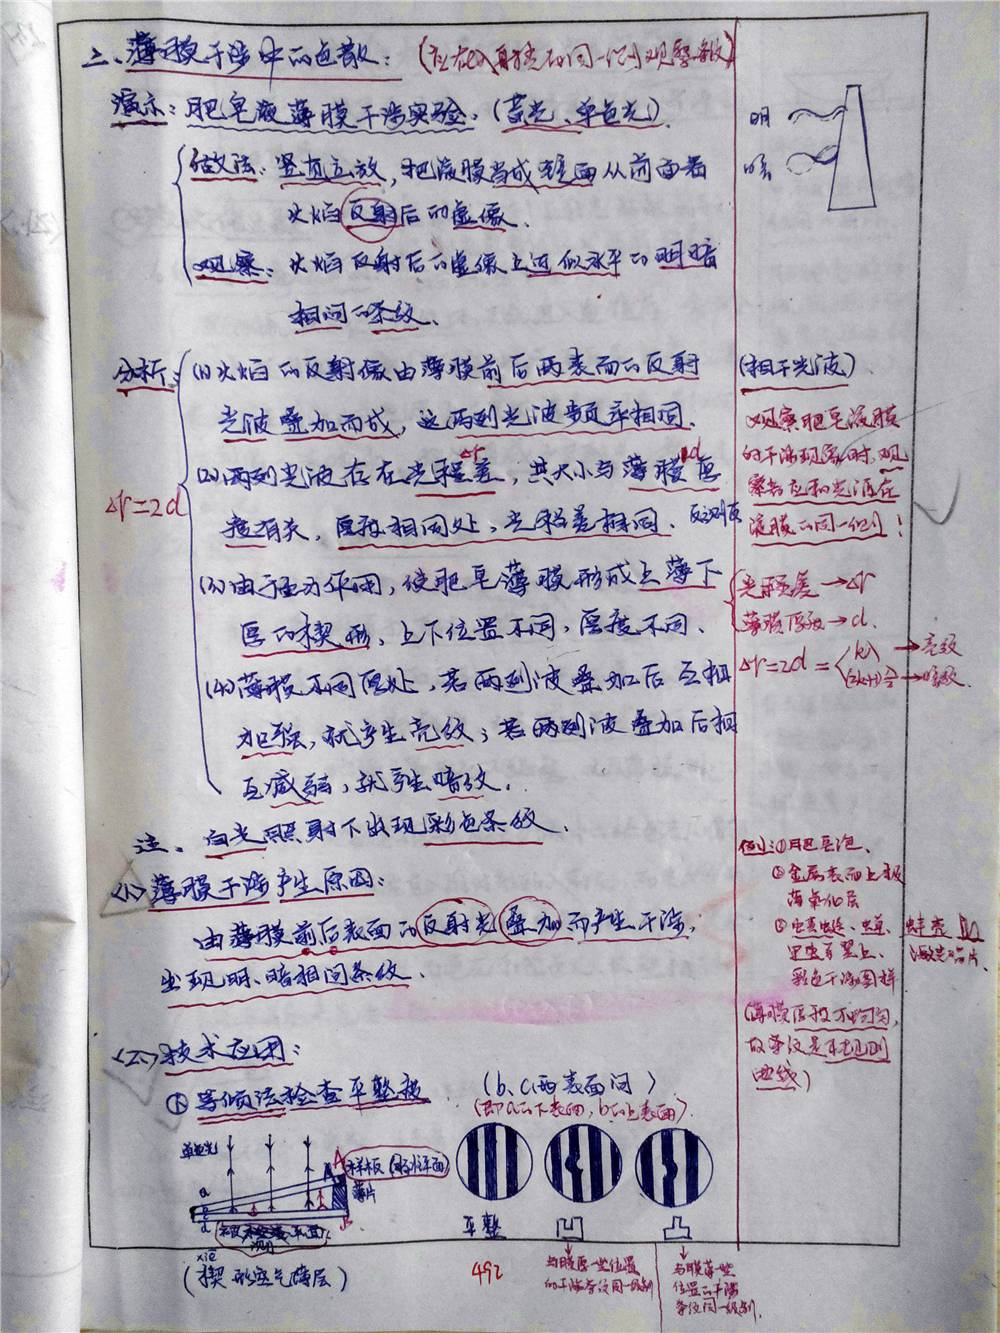 二、薄膜干涉中的色散：（应在入射光的同一侧观察条纹）
演示：肥皂液薄膜干涉实验。（黄光、单色光）
明
暗
做法：竖直立放，把液膜当成镜面从前面看
火焰反射后的虚像。
观察：火焰反射后的虚像上近似水平的明暗
相间的条纹。
分析：
⑴火焰的反射像由薄膜前后两表面的反射
光波叠加而成，这两列光波频率相同。
(相干光波)
⑵两列光波存在光程差，其大小与薄膜厚
Δr
d
度有关，厚度相同处，光程差相同。
Δr=2d
⑶由于重力作用，使肥皂薄膜形成上薄下
厚的楔形，上下位置不同，厚度不同、
⑷薄膜不同厚处，若两列波叠加后互相
加强，就产生亮纹；若两列波叠加后相
互减弱，就产生暗纹。
观察肥皂液膜
的干涉现象时，观
察者应和光源在
液膜的同一侧！
光程差→Δr
薄膜厚度→d.
Δr=2d=
kλ →亮纹
(2k+1)λ/2 →暗纹
注、白光照射下出现彩色条纹、
<一>薄膜干涉产生原因：
由薄膜前后表面的反射光叠加而产生干涉，
出现明、暗相间条纹、
例：①肥皂泡、
②金属表面上极
薄氧化层
彩色干涉图样
(薄膜厚度不均匀，
故条纹是不规则
曲线)
<二>技术应用：
①等倾法检查平整度
(b、c两表面间)
(即a的下表面，b的上表面)
单色光
a
样板(标准平面)
薄片
平整
(楔形空气薄层)
492
与膜厚一些位置
的干涉条纹同一级别
与膜薄一些
位置的干涉
条纹同一级别.